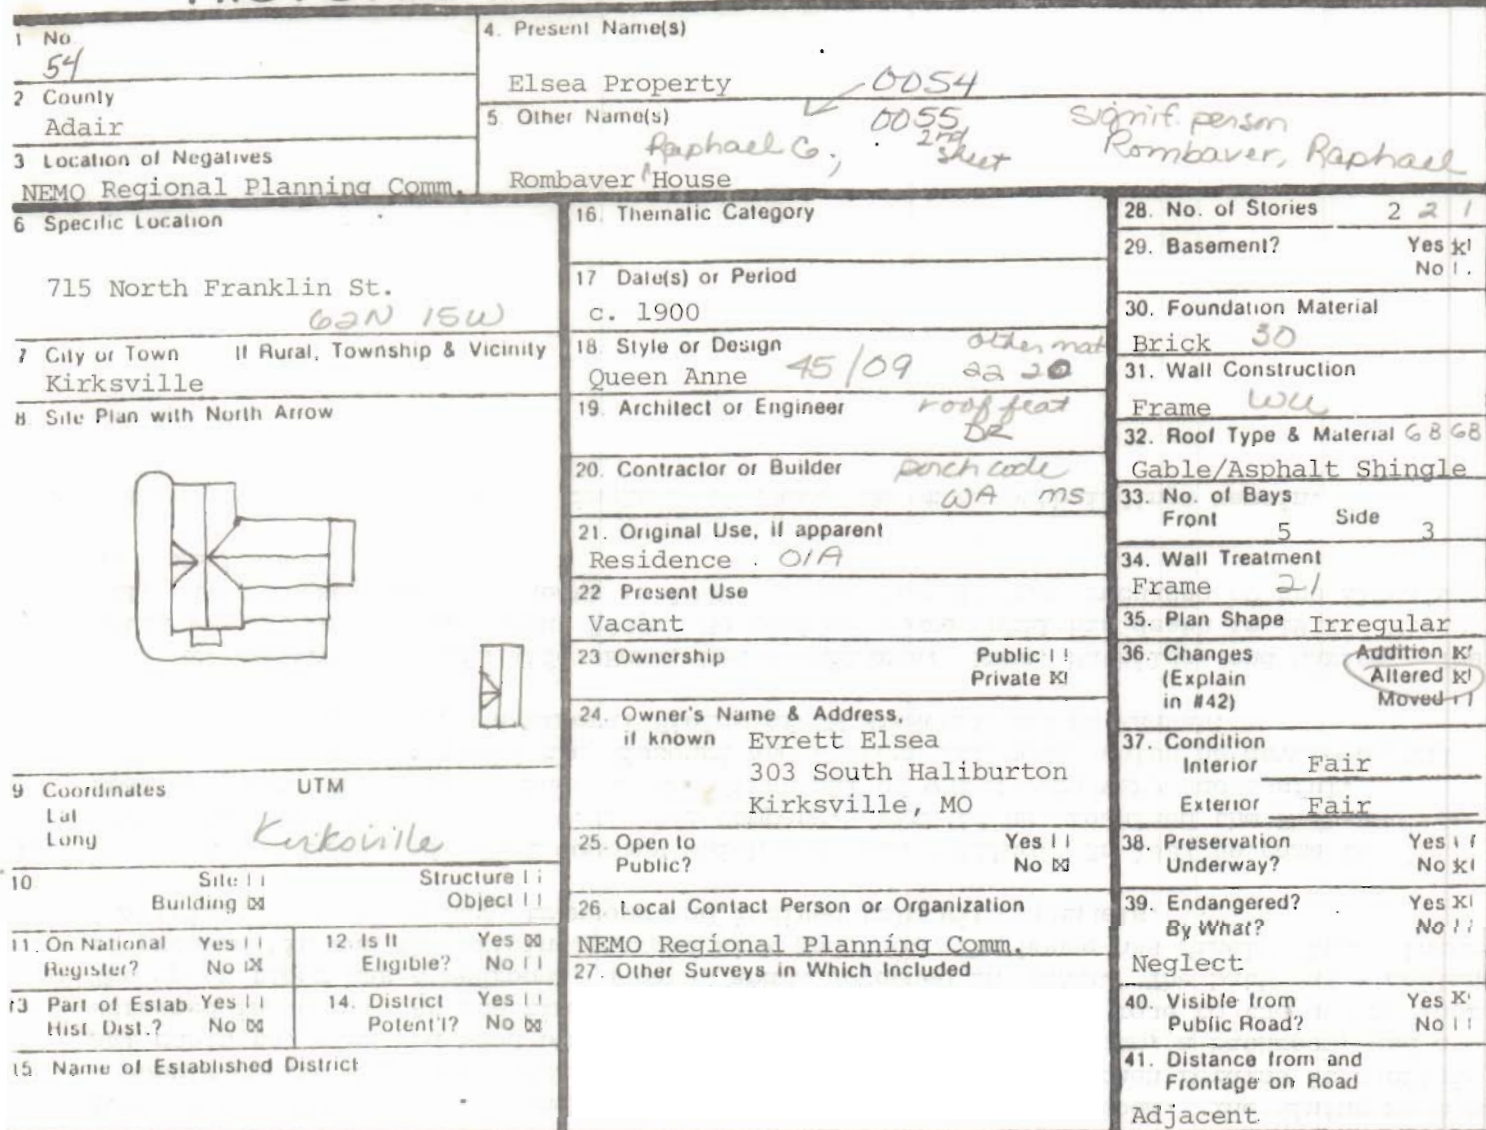 1 No.
54
2 County
Adair
3 Location of Negatives
NEMO Regional Planning Comm.
4. Present Name(s)
Elsea Property
0054
5. Other Name(s)
0055
2nd
sheet
Raphael G.,
Rombaver House
Signif. person
Rombaver, Raphael
6 Specific Location
715 North Franklin St.
62N 15W
7 City or Town If Rural, Township & Vicinity
Kirksville
8 Site Plan with North Arrow
9 Coordinates UTM
Lat
Long
Kirksville
10 Site Structure
Building X Object
11. On National Yes
Register? No X
12. Is It Yes X
Eligible? No
13 Part of Estab Yes
Hist. Dist.? No X
14. District Yes
Potent'l? No X
15. Name of Established District
16. Thematic Category
17 Date(s) or Period
c. 1900
18. Style or Design other mat
Queen Anne 45/09 22 20
19. Architect or Engineer roof feat
DR
20. Contractor or Builder porch code
WA MS
21. Original Use, if apparent
Residence 01A
22 Present Use
Vacant
23 Ownership Public
Private X
24. Owner's Name & Address,
if known Evrett Elsea
303 South Haliburton
Kirksville, MO
25. Open to Yes
Public? No X
26. Local Contact Person or Organization
NEMO Regional Planning Comm.
27. Other Surveys in Which Included
28. No. of Stories 2 2 1
29. Basement? Yes X
No
30. Foundation Material
Brick 30
31. Wall Construction
Frame WU
32. Roof Type & Material 68 68
Gable/Asphalt Shingle
33. No. of Bays
Front 5 Side 3
34. Wall Treatment
Frame 21
35. Plan Shape Irregular
36. Changes Addition X
(Explain Altered X
in #42) Moved
37. Condition
Interior Fair
Exterior Fair
38. Preservation Yes
Underway? No X
39. Endangered? Yes X
By What? No
Neglect
40. Visible from Yes X
Public Road? No
41. Distance from and
Frontage on Road
Adjacent